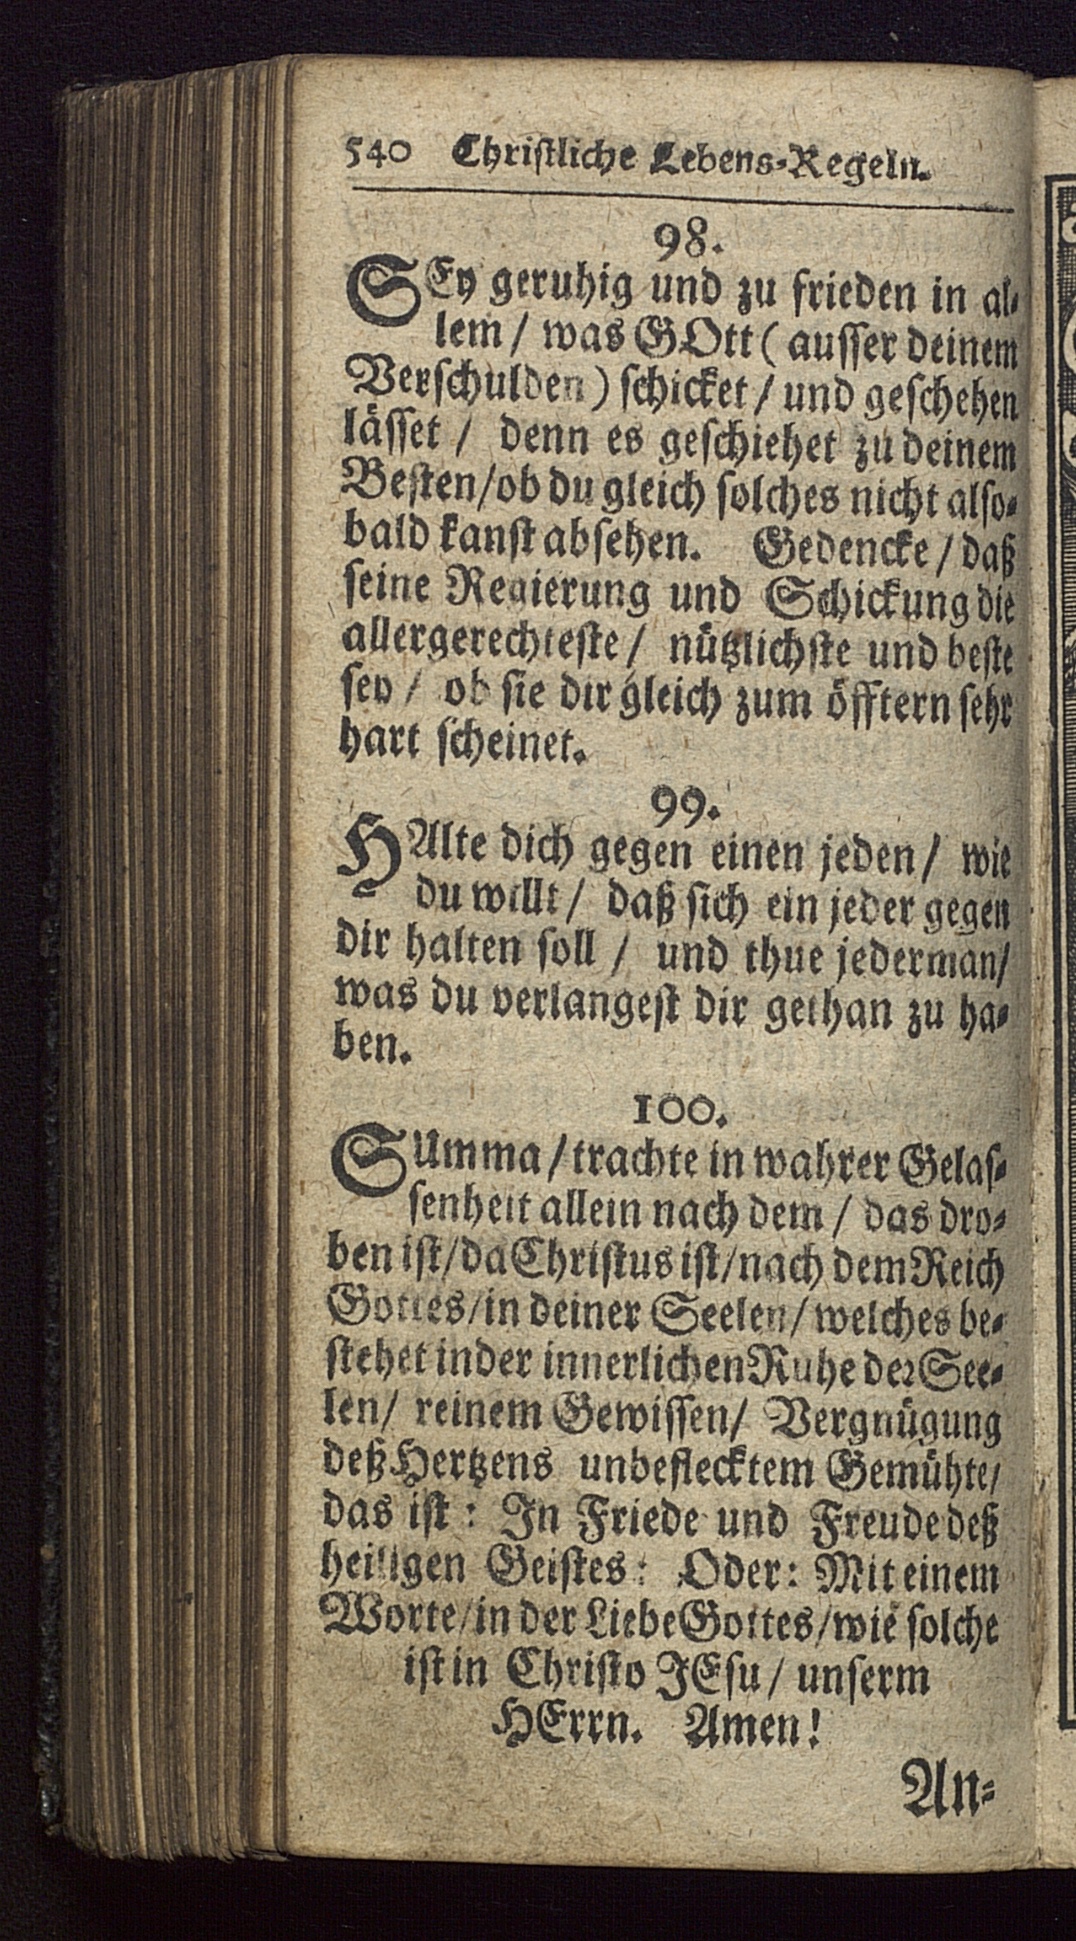 540 Christliche Lebens-Regeln.
98.
SEy geruhig und zu frieden in al-
lem / was GOtt ( ausser deinem
Verschulden ) schicket / und geschehen
lässet / denn es geschiehet zu deinem
Besten/ob du gleich solches nicht also-
bald kanst absehen. Gedencke / daß
seine Regierung und Schickung die
allergerechteste / nützlichste und beste
sey / ob sie dir gleich zum öfftern sehr
hart scheinet.
99.
HAlte dich gegen einen jeden / wie
du willt / daß sich ein jeder gegen
dir halten soll / und thue jederman/
was du verlangest dir gethan zu ha-
ben.
100.
SUmma / trachte in wahrer Gelas-
senheit allein nach dem / das dro-
ben ist/da Christus ist/nach dem Reich
Gottes/in deiner Seelen/ welches be-
stehet in der innerlichen Ruhe der See-
len/ reinem Gewissen/ Vergnügung
deß Hertzens unbeflecktem Gemühte/
das ist : In Friede und Freude deß
heiligen Geistes : Oder : Mit einem
Worte/in der Liebe Gottes/wie solche
ist in Christo JEsu / unserm
HErrn. Amen!
An-